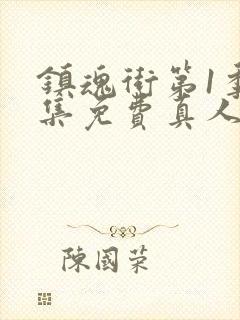 鎮魂街第1季
集免費真人
陳國榮